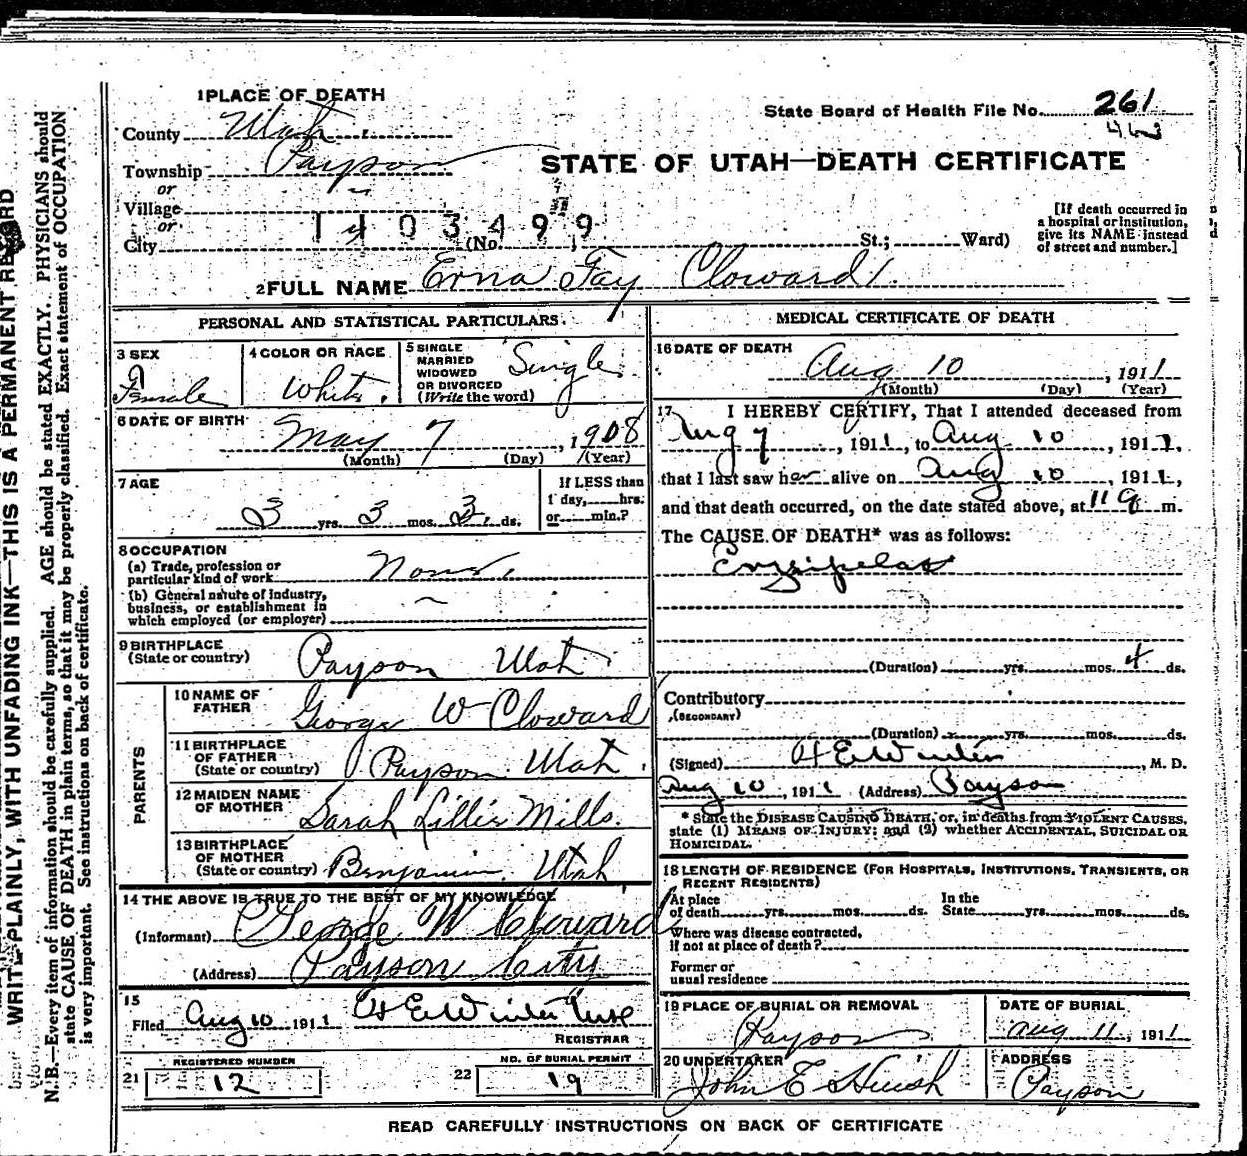 1 PLACE OF DEATH
County Utah.
Township Payson
or
Village
or
City (No. St.; Ward)
State Board of Health File No. 261
STATE OF UTAH—DEATH CERTIFICATE
[If death occurred in
a hospital or institution,
give its NAME instead
of street and number.]
2 FULL NAME Erna Fay Cloward
PERSONAL AND STATISTICAL PARTICULARS.
3 SEX
Female
4 COLOR OR RACE
White.
5 SINGLE
MARRIED
WIDOWED
OR DIVORCED
(Write the word)
Single
6 DATE OF BIRTH
May 7, 1908
(Month) (Day) (Year)
7 AGE
3 yrs. 3 mos. 3. ds.
If LESS than
1 day, hrs.
or min.?
8 OCCUPATION
(a) Trade, profession or
particular kind of work None.
(b) General nature of industry,
business, or establishment in
which employed (or employer)
9 BIRTHPLACE
(State or country) Payson Utah.
PARENTS
10 NAME OF
FATHER George W Cloward
11 BIRTHPLACE
OF FATHER
(State or country) Payson Utah.
12 MAIDEN NAME
OF MOTHER Sarah Lillie Mills.
13 BIRTHPLACE
OF MOTHER
(State or country) Benjamin. Utah
14 THE ABOVE IS TRUE TO THE BEST OF MY KNOWLEDGE
(Informant) George W Cloward
(Address) Payson City
15
Filed Aug 10 1911 H E Winter
REGISTRAR
REGISTERED NUMBER
21 12
NO. OF BURIAL PERMIT
22 19
MEDICAL CERTIFICATE OF DEATH
16 DATE OF DEATH
Aug 10, 1911
(Month) (Day) (Year)
17 I HEREBY CERTIFY, That I attended deceased from
Aug 7, 1911, to Aug 10, 1911,
that I last saw her alive on Aug 10, 1911,
and that death occurred, on the date stated above, at 11 a m.
The CAUSE OF DEATH* was as follows:
Erysipelas
(Duration) yrs. mos. 4 ds.
Contributory
(SECONDARY)
(Duration) yrs. mos. ds.
(Signed) H E Winter, M. D.
Aug 10, 1911 (Address) Payson
* State the DISEASE CAUSING DEATH, or, in deaths from VIOLENT CAUSES,
state (1) MEANS OF INJURY; and (2) whether ACCIDENTAL, SUICIDAL OR
HOMICIDAL.
18 LENGTH OF RESIDENCE (FOR HOSPITALS, INSTITUTIONS, TRANSIENTS, OR
RECENT RESIDENTS)
At place In the
of death yrs. mos. ds. State yrs. mos. ds.
Where was disease contracted,
if not at place of death?
Former or
usual residence
19 PLACE OF BURIAL OR REMOVAL
Payson
DATE OF BURIAL
Aug 11, 1911
20 UNDERTAKER
John E Huish
ADDRESS
Payson
READ CAREFULLY INSTRUCTIONS ON BACK OF CERTIFICATE
WRITE PLAINLY, WITH UNFADING INK—THIS IS A PERMANENT RECORD
N. B.—Every item of information should be carefully supplied. AGE should be stated EXACTLY. PHYSICIANS should
state CAUSE OF DEATH in plain terms, so that it may be properly classified. Exact statement of OCCUPATION
is very important. See instructions on back of certificate.